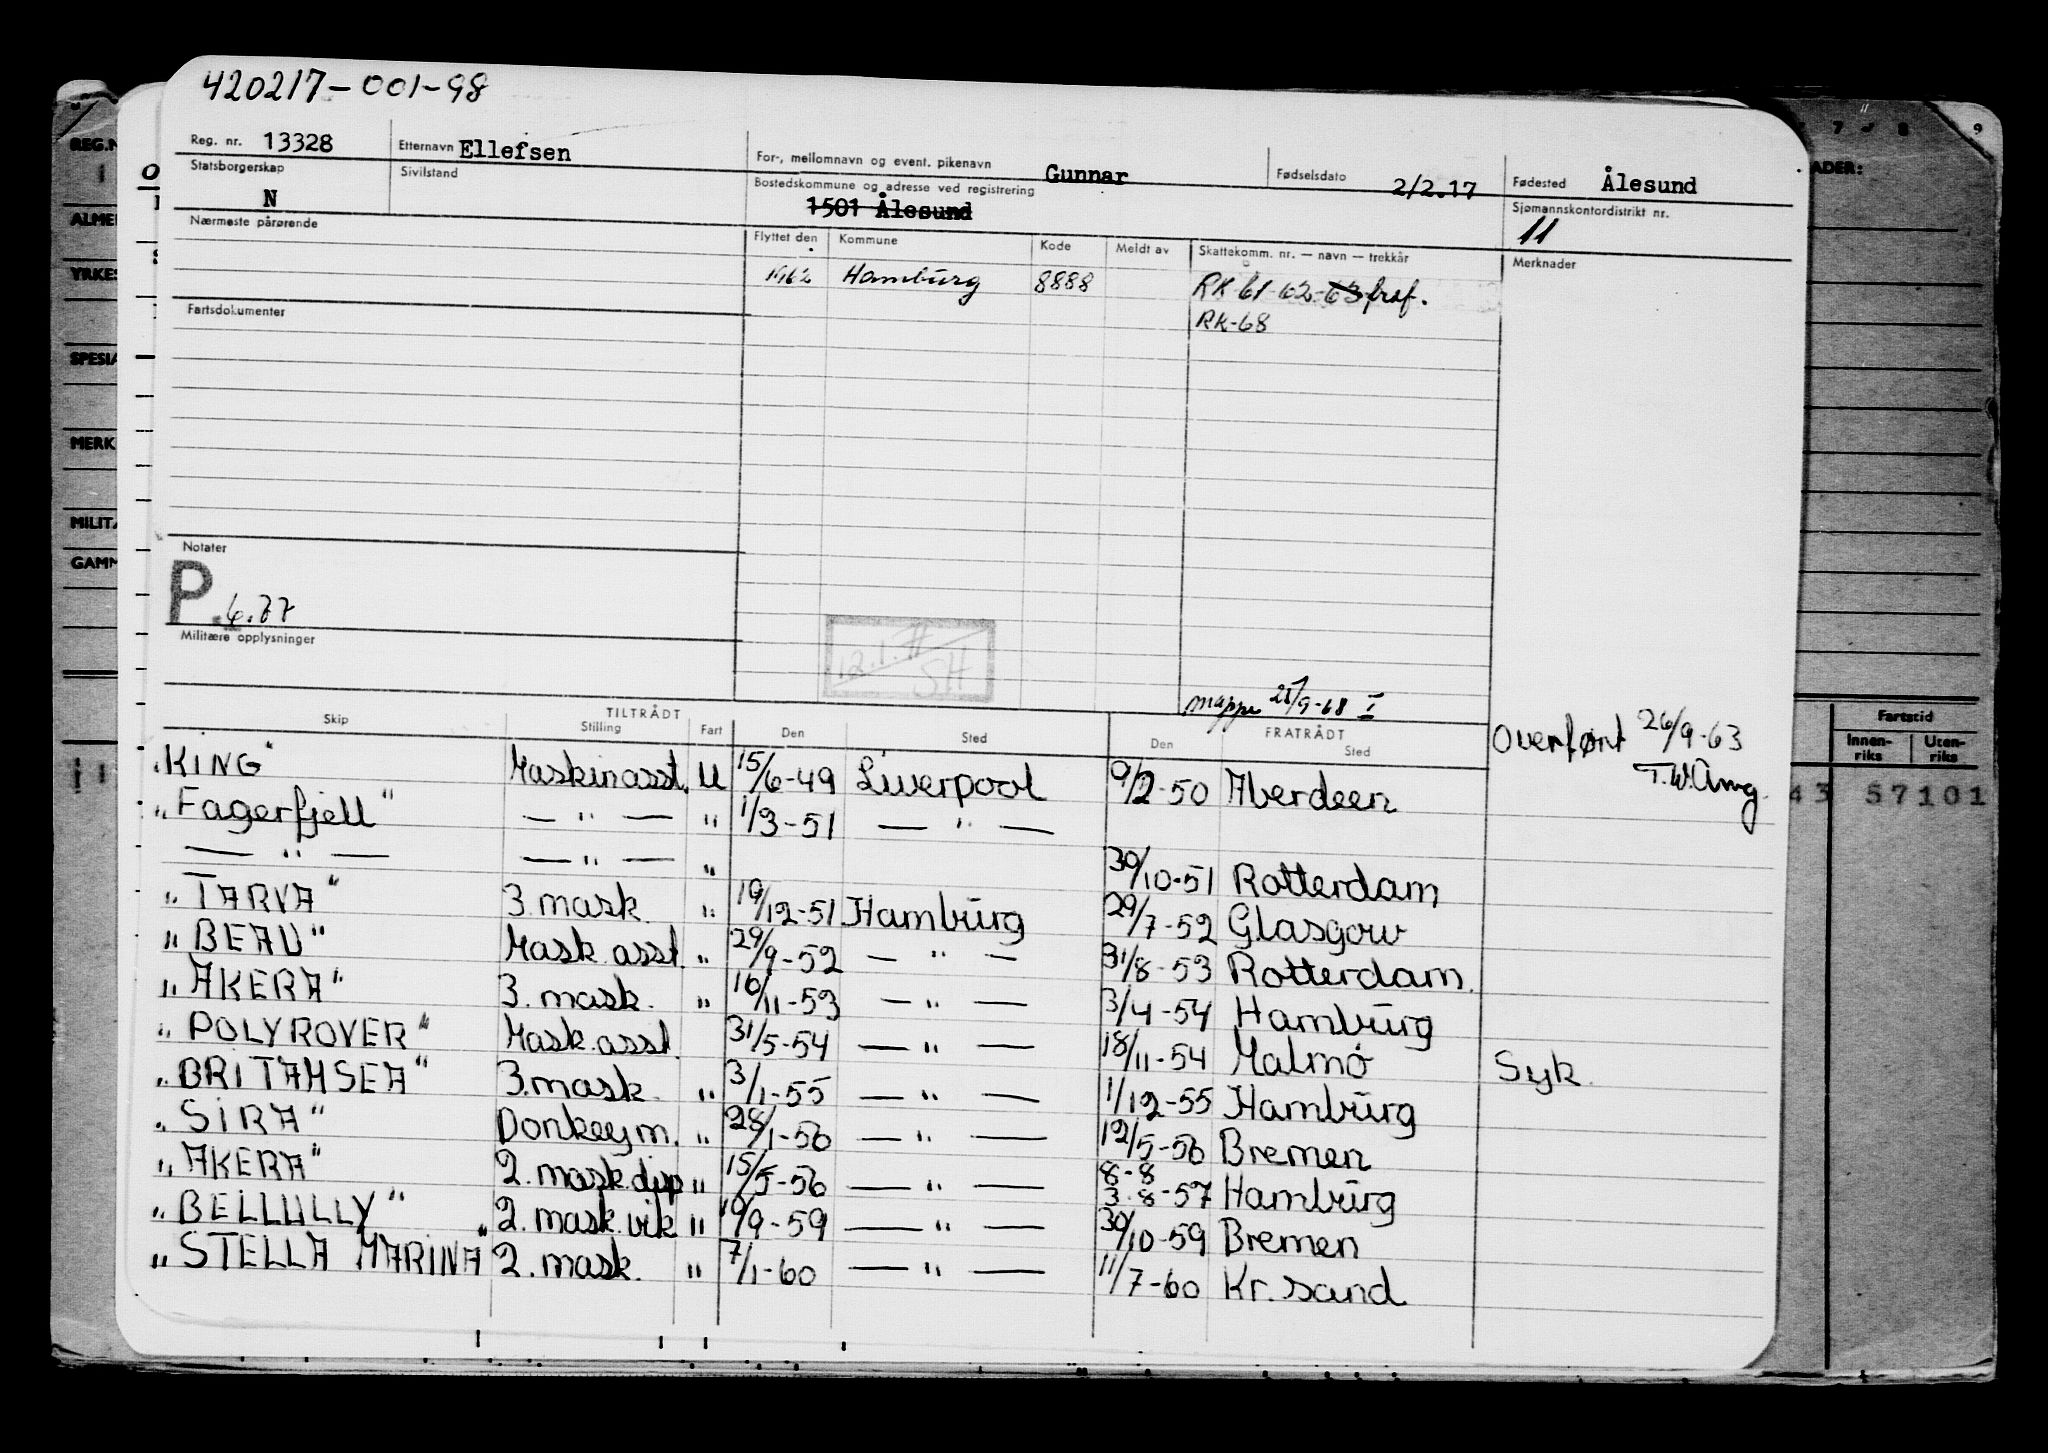 420217-001-98
Reg. nr. 13328 Etternavn Ellefsen For-, mellomnavn og event. pikenavn Gunnar Fødselsdato 2/2.17 Fødested Ålesund
Statsborgerskap N Sivilstand Bostedskommune og adresse ved registrering 1501 Ålesund Sjømannskontordistrikt nr. 11
Nærmeste pårørende Flyttet den Kommune Kode Meldt av Skattekomm. nr. — navn — trekkår Merknader
1962 Hamburg 8888 RK-61-62-63 fraf.
RK-68
Fartsdokumenter
Notater
P. 6.77
Militære opplysninger
12.1.77
SH
mappe 25/9-68 I
TILTRÅDT FRATRÅDT
Skip Stilling Fart Den Sted Den Sted
Overført 26/9-63
"KING" Maskinasst. U 15/6-49 Liverpool 9/2-50 Aberdeen
"Fagerfjell" — " — " 1/3-51 — " —
— " — — " — " 30/10-51 Rotterdam
"TARVA" 3. mask. " 19/12-51 Hamburg 29/7-52 Glasgow
"BEAU" Mask.asst. " 29/9-52 — " — 31/8-53 Rotterdam.
"AKERA" 3. mask. " 10/11-53 — " — 3/4-54 Hamburg
"POLYROVER" Mask.asst. 31/5-54 — " — 18/11-54 Malmø Syk.
"BRITAMSEA" 3. mask. " 3/1-55 — " — 1/12-55 Hamburg
"SIRA" Donkeym. " 28/1-56 — " — 12/5-56 Bremen
"AKERA" 2. mask.disp " 15/5-56 — " — 8-8
3.8-57 Hamburg
"BELLULLY" 2. mask.vik " 10/9-59 — " — 30/10-59 Bremen
"STELLA MARINA" 2. mask. " 7/1-60 — " — 11/7-60 Kr.sand
REG.N
ALME
YRKES
SPESIA
MERK
MILITÆ
GAMM
7 - 8 9
ADER:
Fartstid
Innen-
riks
Uten-
riks
43 57101